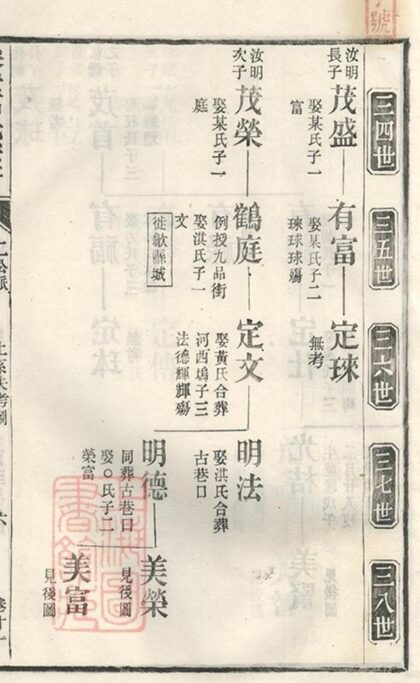 三四世
三五世
三六世
三七世
三八世
汝明
長子
茂盛
娶某氏子一
富
有富
娶某氏子二
琜球球殤
定琜
無考
汝明
次子
茂榮
娶某氏子一
庭
鶴庭
例授九品銜
娶淇氏子一
文
徙歙縣城
定文
娶黃氏合葬
河西塢子三
法德輝輝殤
明法
娶淇氏合葬
古巷口
明德
同葬古巷口
娶○氏子二
榮富
美榮
見後圖
美富
見後圖
六